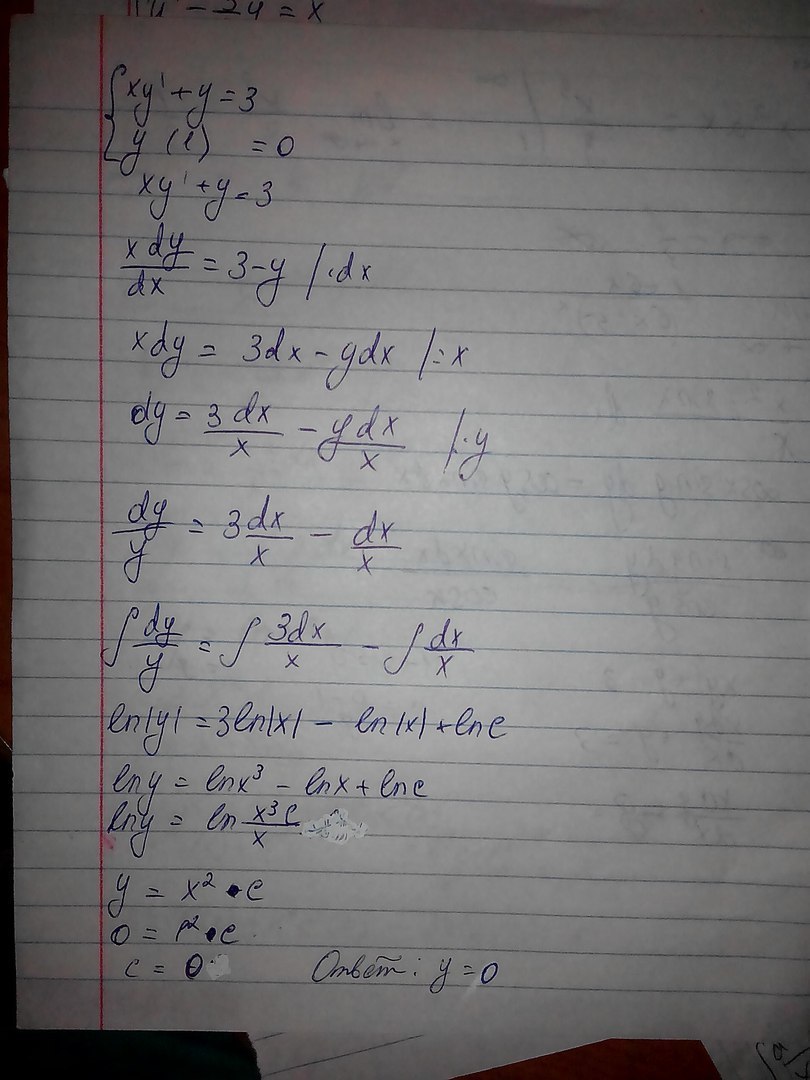 xy' + y = 3
y (1) = 0
xy' + y = 3
x dy / dx = 3 - y |·dx
x dy = 3dx - ydx |:x
dy = 3 dx / x - y dx / x |:y
dy / y = 3 dx / x - dx / x
∫ dy / y = ∫ 3dx / x - ∫ dx / x
ln|y| = 3ln|x| - ln|x| + ln c
ln y = ln x³ - ln x + ln c
ln y = ln x³ c / x
y = x² · c
0 = 1² · c
c = 0 Ответ: y = 0